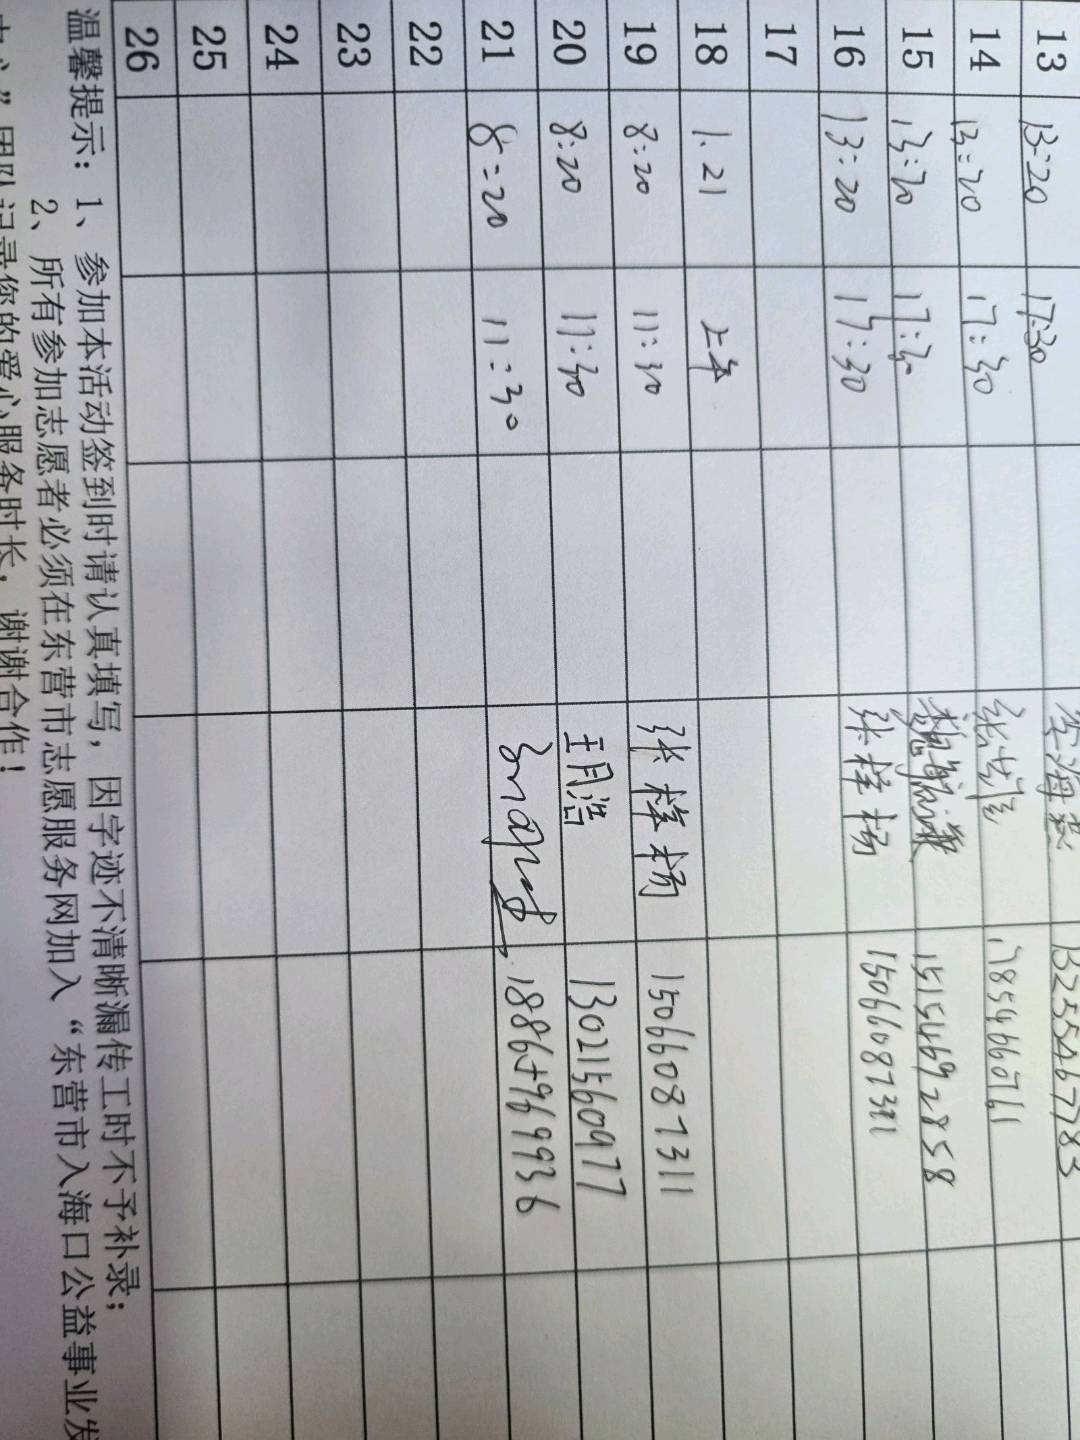 13 13:20 17:30 李海燕 13255467783
14 13:20 17:30 17854660761
15 13:20 17:30 15154692858
16 13:20 17:30 张梓杨 15066087311
17
18 1.21 上午
19 8:20 11:30 张梓杨 15066087311
20 8:20 11:30 王月浩 13021560977
21 8:20 11:30 18865969936
22
23
24
25
26
温馨提示：1、参加本活动签到时请认真填写，因字迹不清晰漏传工时不予补录；
2、所有参加志愿者必须在东营市志愿服务网加入“东营市入海口公益事业发
中心”团队记录你的爱心服务时长，谢谢合作！